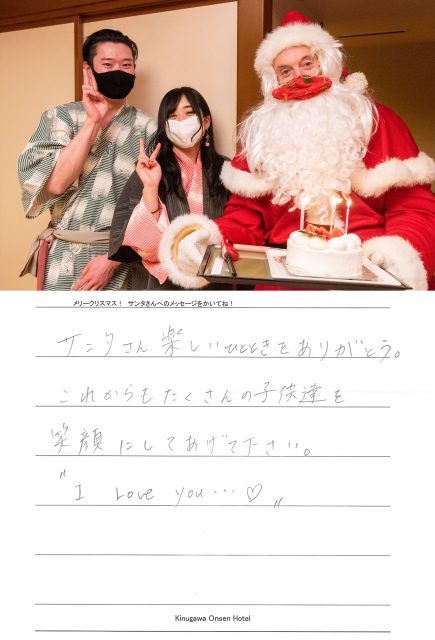 メリークリスマス！ サンタさんへのメッセージをかいてね！
サンタさん楽しいひとときをありがとう。
これからもたくさんの子供達を
笑顔にしてあげて下さい。
"I Love you…♡"
Kinugawa Onsen Hotel